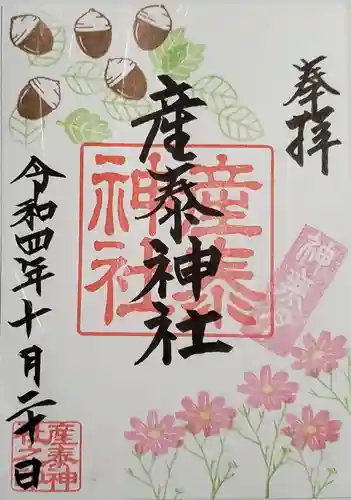 奉拝
産泰神社
産泰
神社
令和四年十月二十日
産泰神
社之印